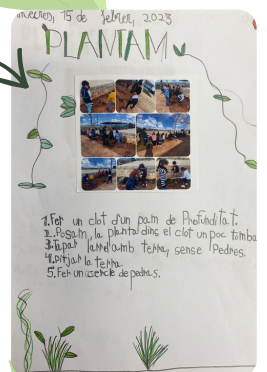 Dimecres, 15 de febrer, 2023
PLANTAM
1. Fer un clot d'un pam de Profunditat.
2. Posam, la planta dins el clot un poc tomba
3. Tapar larrel amb terra, sense Pedres.
4. Pitjar la terra.
5. Fer un cercle de pedras.